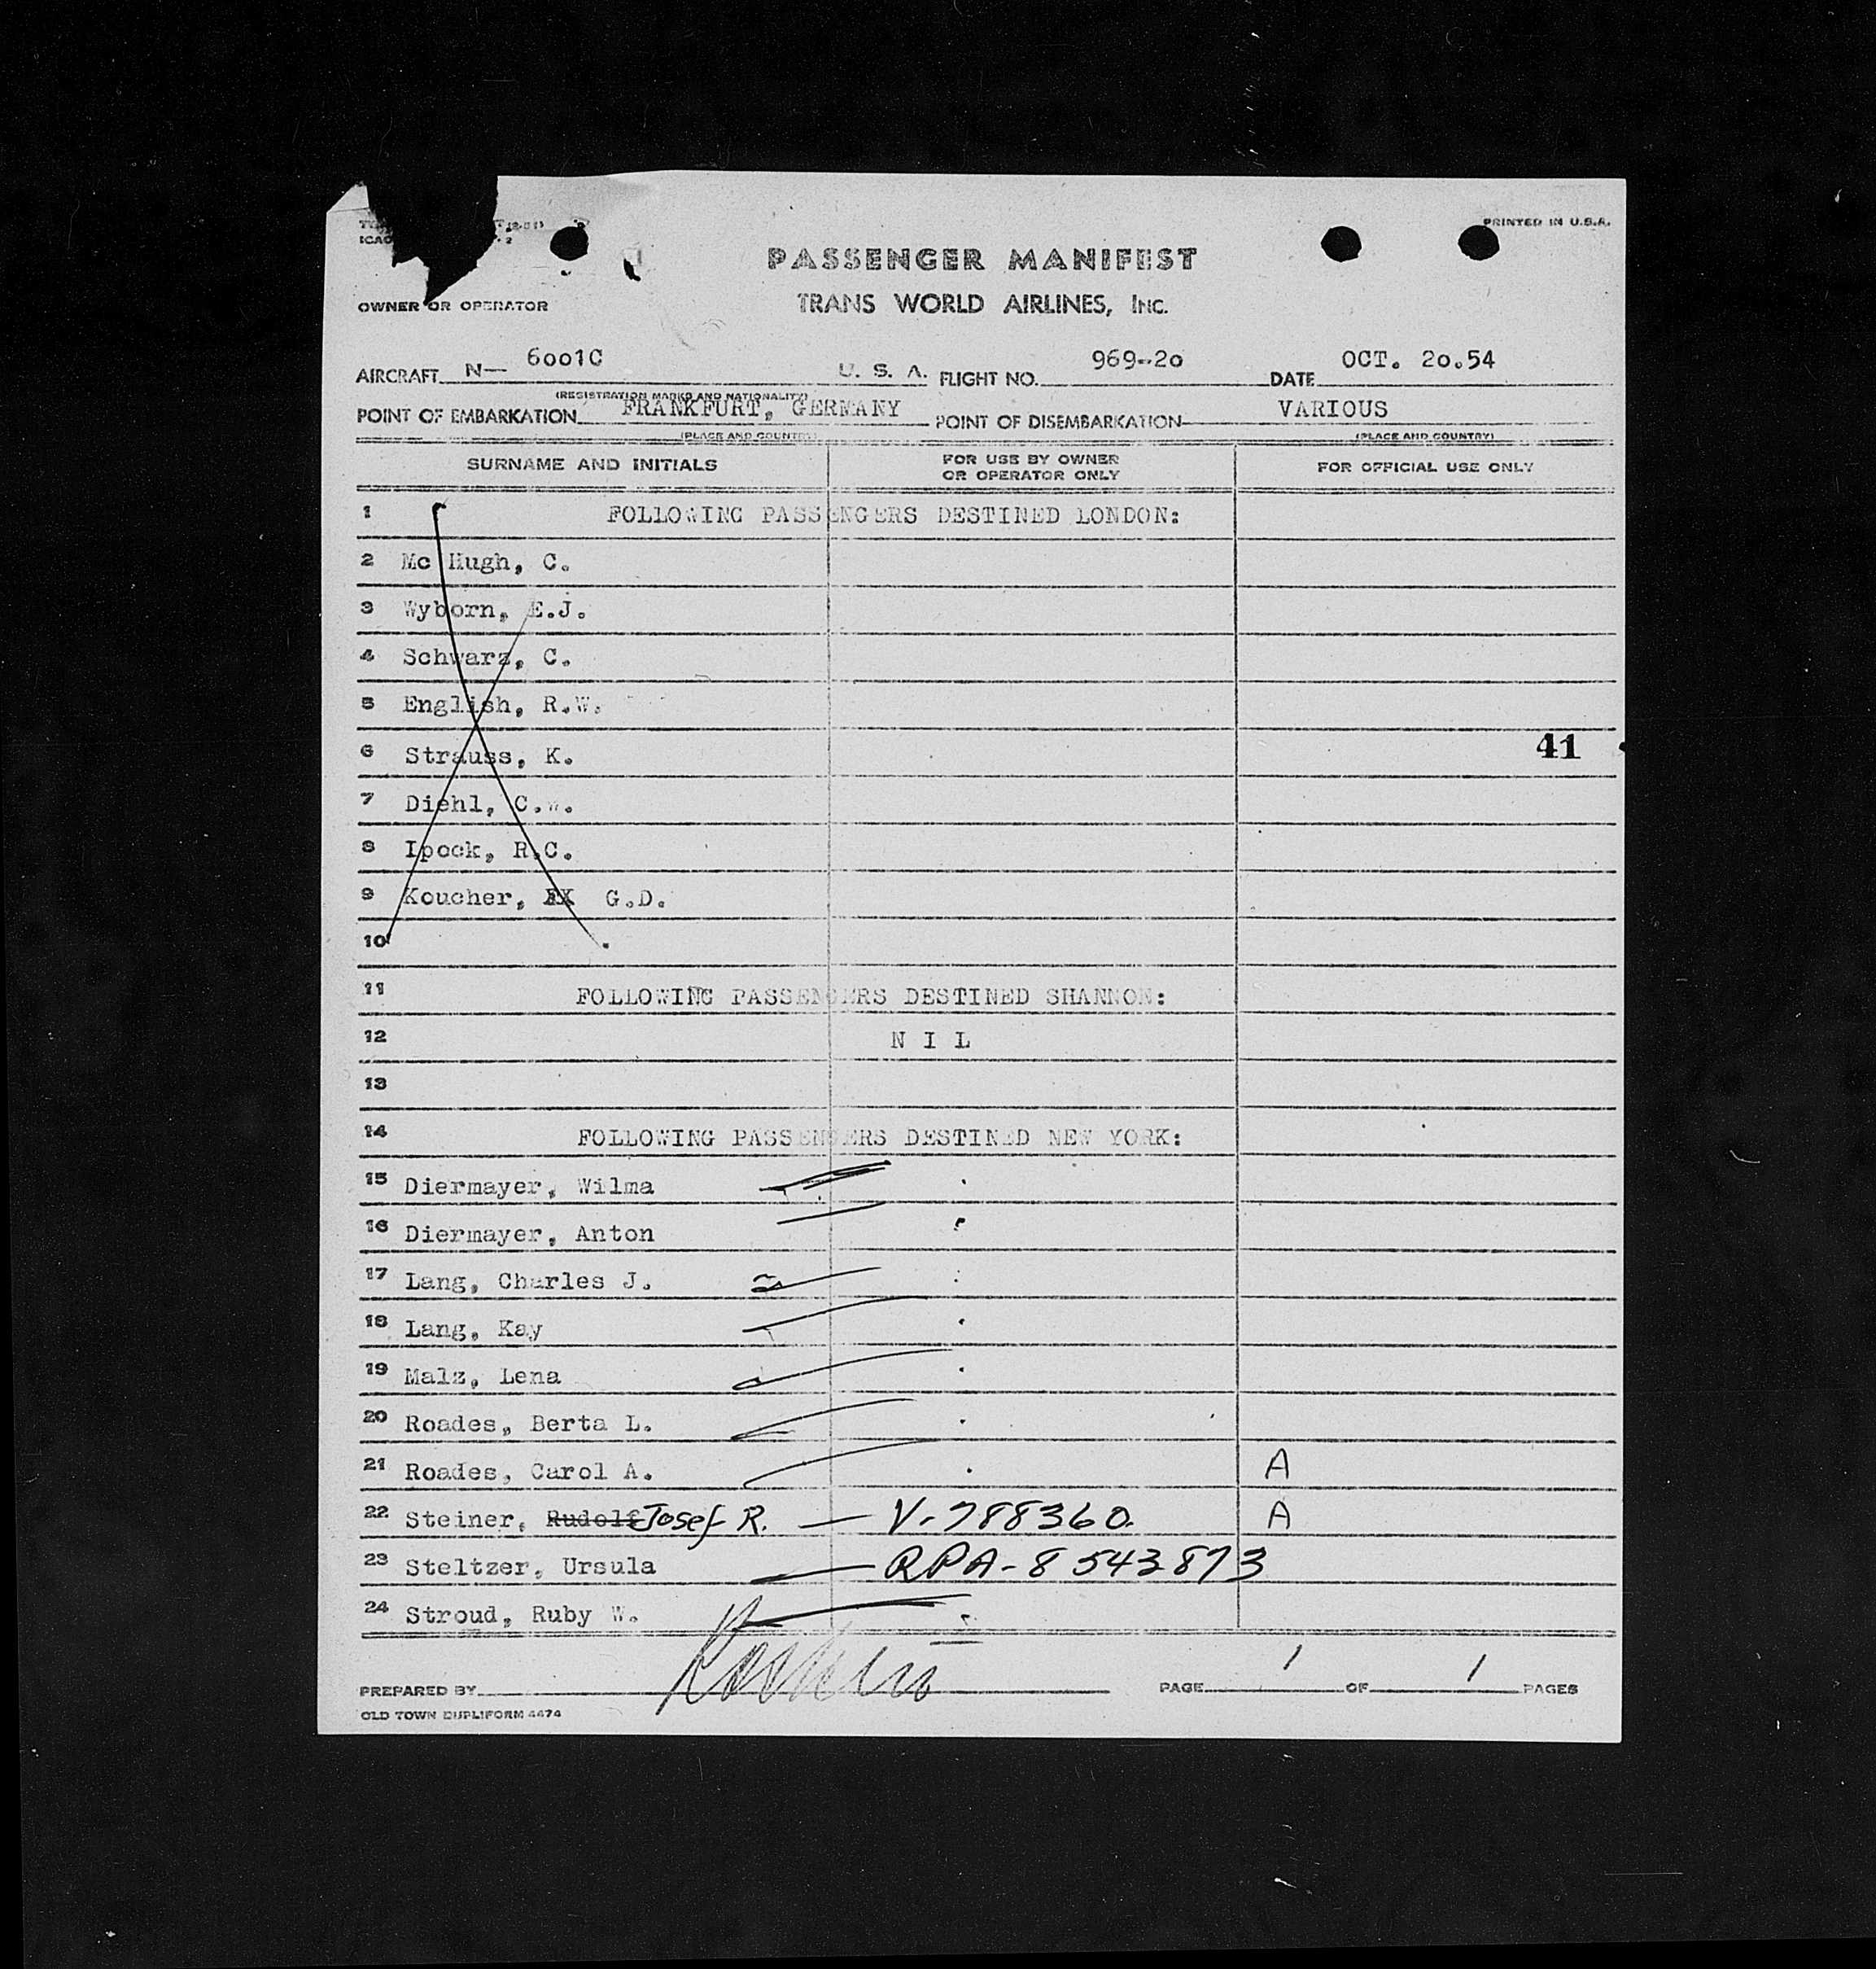 PRINTED IN U.S.A.
PASSENGER MANIFEST
OWNER OR OPERATOR TRANS WORLD AIRLINES, INC.
AIRCRAFT N— 6001C U. S. A. FLIGHT NO. 969-20 DATE OCT. 20.54
(REGISTRATION MARKS AND NATIONALITY)
POINT OF EMBARKATION FRANKFURT, GERMANY POINT OF DISEMBARKATION VARIOUS
(PLACE AND COUNTRY) (PLACE AND COUNTRY)
SURNAME AND INITIALS FOR USE BY OWNER OR OPERATOR ONLY FOR OFFICIAL USE ONLY
1 FOLLOWING PASSENGERS DESTINED LONDON:
2 Mc Hugh, C.
3 Wyborn, E.J.
4 Schwarz, C.
5 English, R.W.
6 Strauss, K. 41
7 Diehl, C.W.
8 Ipock, R.C.
9 Koucher, G.D.
10
11 FOLLOWING PASSENGERS DESTINED SHANNON:
12 N I L
13
14 FOLLOWING PASSENGERS DESTINED NEW YORK:
15 Diermayer, Wilma
16 Diermayer, Anton
17 Lang, Charles J.
18 Lang, Kay
19 Malz, Lena
20 Roades, Berta L.
21 Roades, Carol A. A
22 Steiner, Rudolf Josef R. — V-788360. A
23 Steltzer, Ursula — RPA-8543873
24 Stroud, Ruby W.
PREPARED BY PAGE 1 OF 1 PAGES
OLD TOWN DUPLIFORM 4474